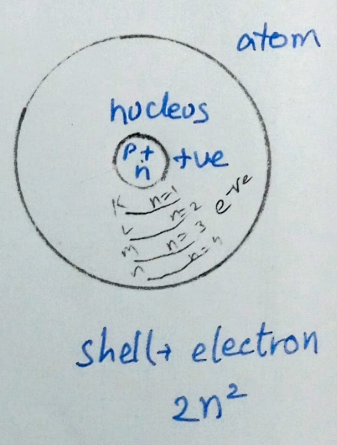 atom
nucleus
P+
n
+ve
K n=1
L n=2
M n=3
n n=4
e-ve
shell→ electron
2n²